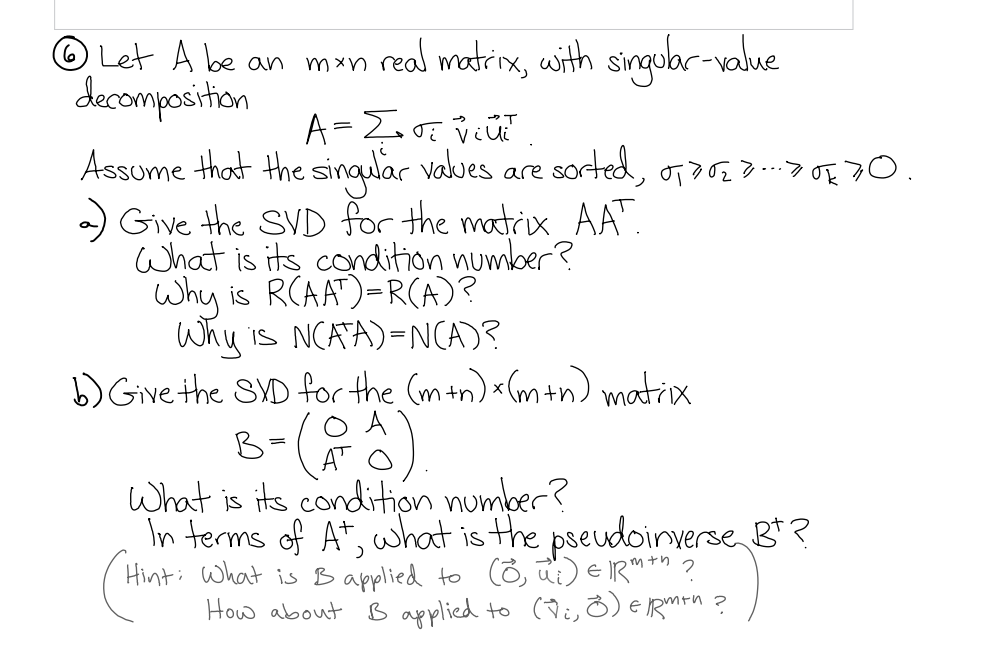 ⑥ Let A be an m×n real matrix, with singular-value
decomposition
A = Σ_i σ_i v⃗_i u⃗_i^T.
Assume that the singular values are sorted, σ_1 ≥ σ_2 ≥ ... ≥ σ_k ≥ 0.
a) Give the SVD for the matrix AA^T.
What is its condition number?
Why is R(AA^T)=R(A)?
Why is N(A^TA)=N(A)?
b) Give the SVD for the (m+n)×(m+n) matrix
B = ( 0 A
A^T 0 ).
What is its condition number?
In terms of A^+, what is the pseudoinverse B^+?
(Hint: What is B applied to (0⃗, u⃗_i) ∈ ℝ^{m+n}?
How about B applied to (v⃗_i, 0⃗) ∈ ℝ^{m+n}?)